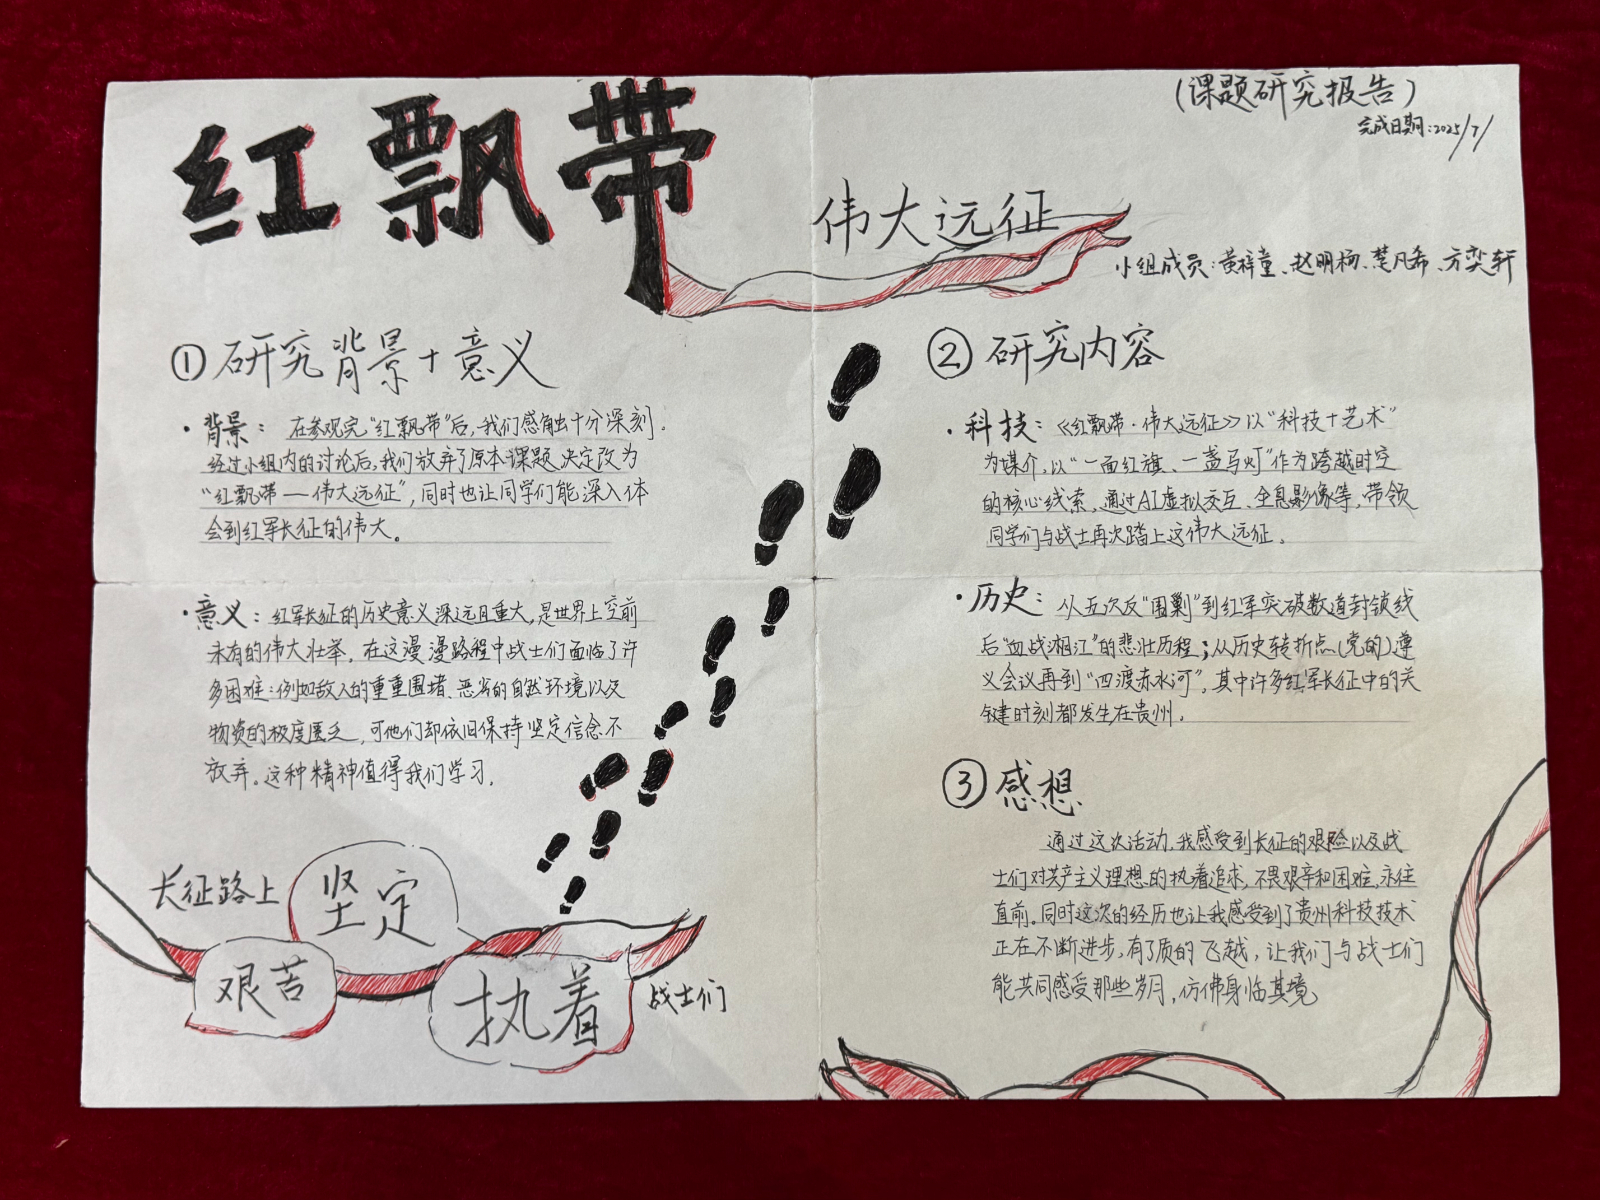 红飘带
伟大远征
(课题研究报告)
完成日期:2025/7/
小组成员:黄梓童、赵明杨、楚凡希、方奕轩
① 研究背景+意义
·背景: 在参观完“红飘带”后,我们感触十分深刻.
经过小组内的讨论后,我们放弃了原本课题决定改为
“红飘带——伟大远征”,同时也让同学们能深入体
会到红军长征的伟大。
·意义:红军长征的历史意义深远且重大,是世界上空前
未有的伟大壮举,在这漫漫路程中战士们面临了许
多困难:例如敌人的重重围堵、恶劣的自然环境以及
物资的极度匮乏,可他们却依旧保持坚定信念不
放弃。这种精神值得我们学习.
长征路上
坚定
艰苦
执着
战士们
② 研究内容
·科技:《红飘带·伟大远征》以“科技+艺术”
为媒介,以“一面红旗、一盏马灯”作为跨越时空
的核心线索,通过AI虚拟交互、全息影像等,带领
同学们与战士再次踏上这伟大远征.
·历史: 从五次反“围剿”到红军突破数道封锁线
后“血战湘江”的悲壮历程;从历史转折点(党的)遵
义会议再到“四渡赤水河”,其中许多红军长征中的关
键时刻都发生在贵州.
③ 感想
通过这次活动,我感受到长征的艰险以及战
士们对共产主义理想的执着追求,不畏艰辛和困难,永往
直前。同时这次的经历也让我感受到了贵州科技技术
正在不断进步,有了质的飞越,让我们与战士们
能共同感受那些岁月,仿佛身临其境